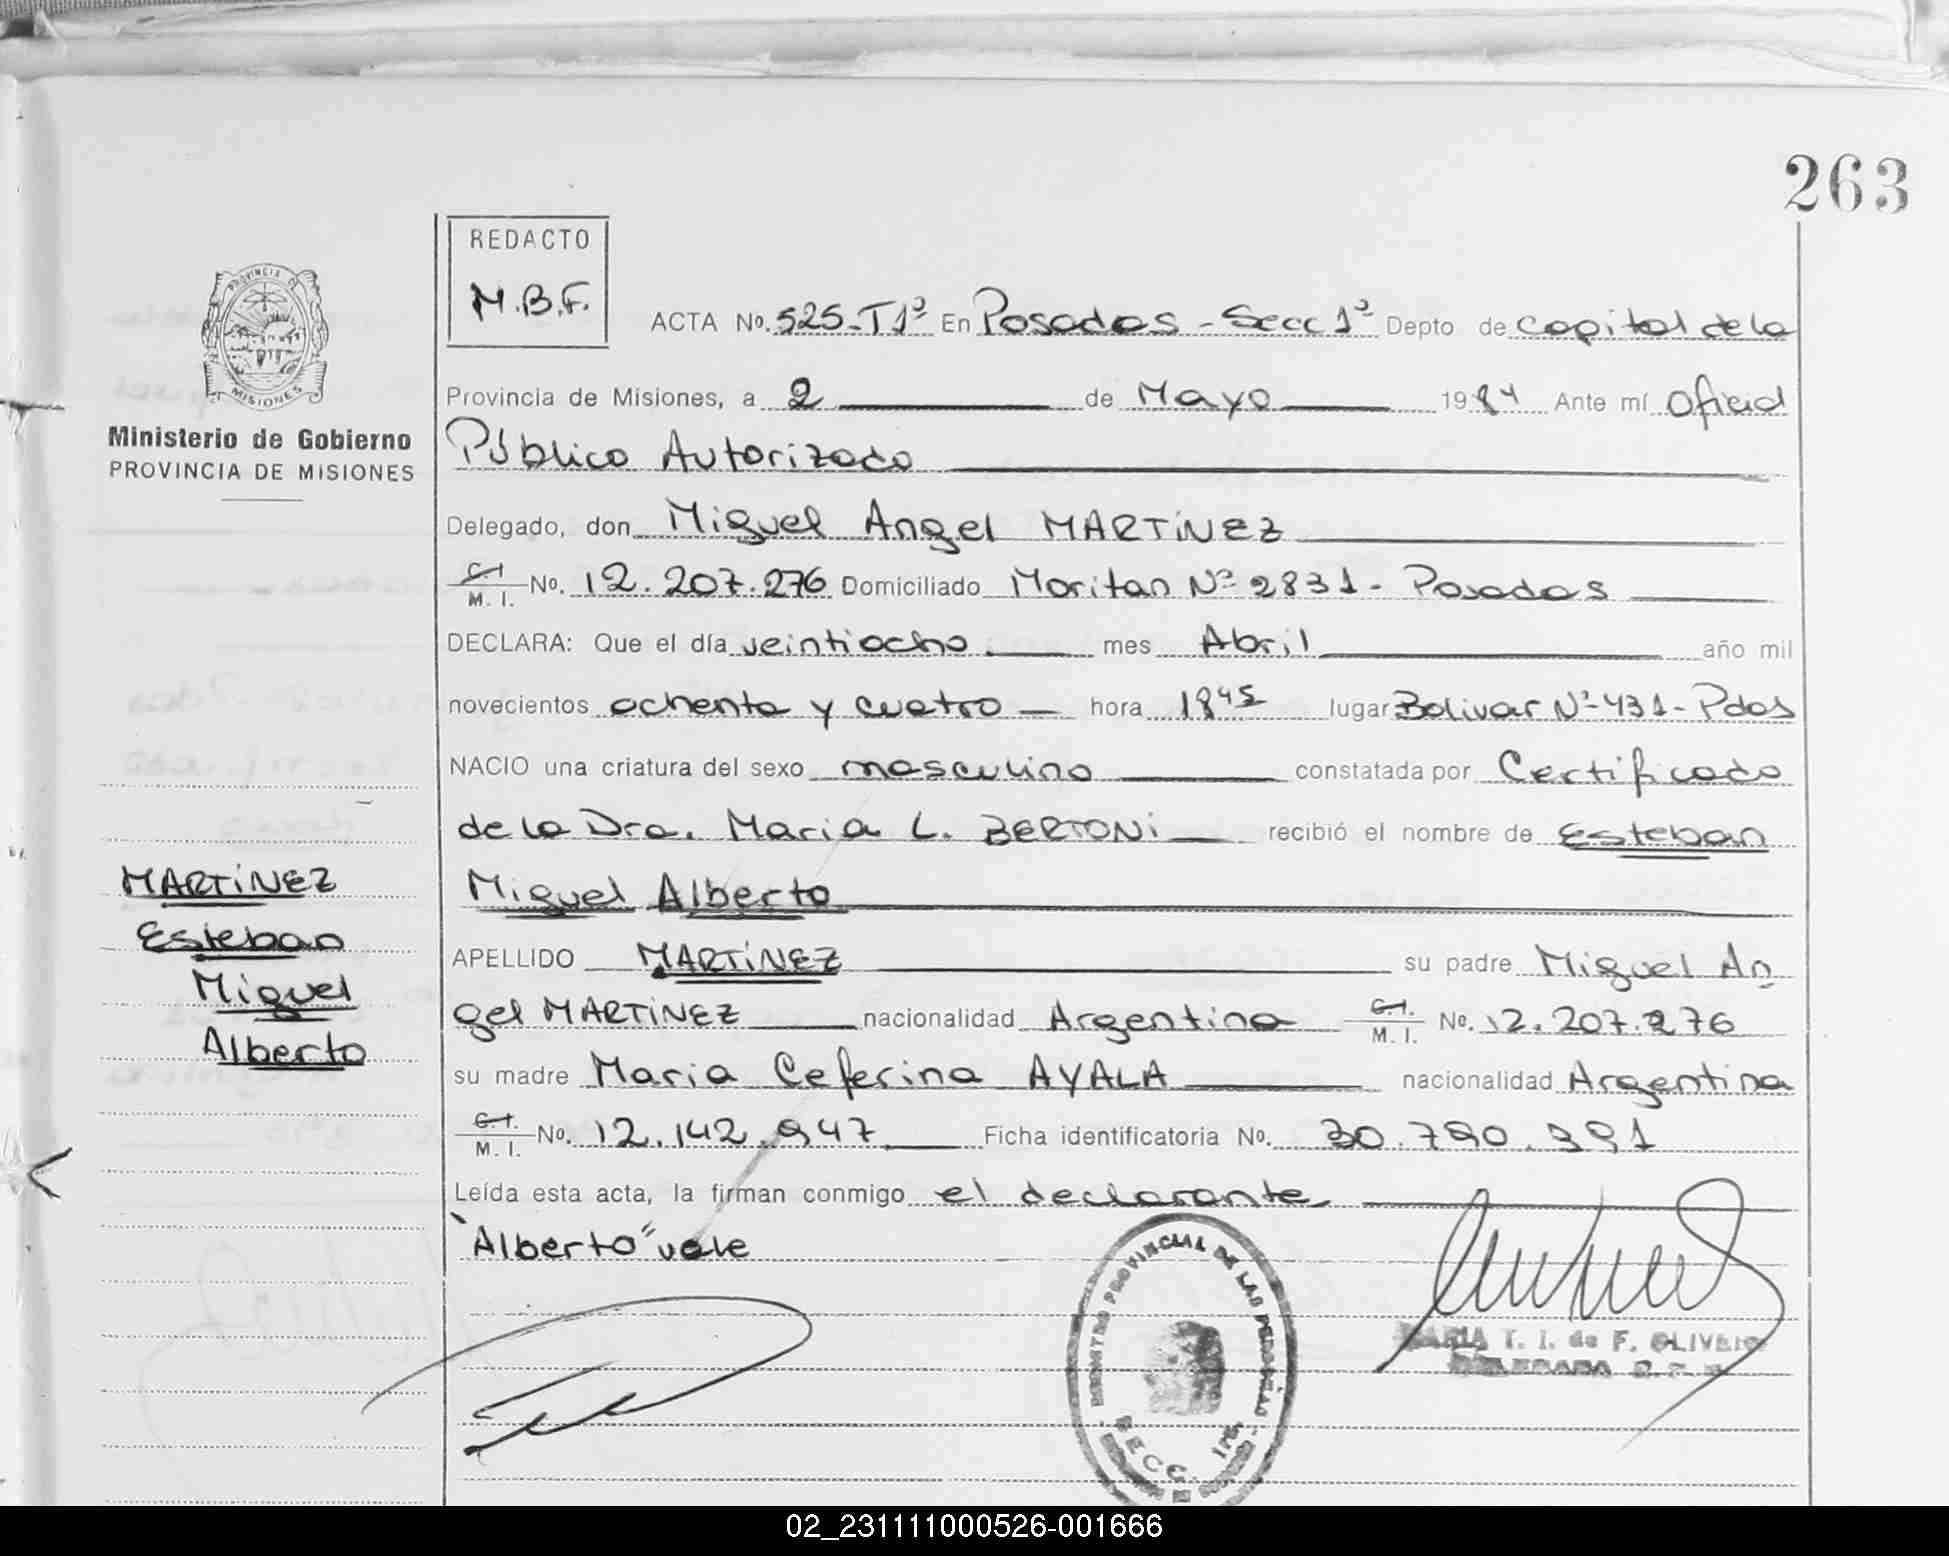 263
REDACTO
M.B.F.
PROVINCIA DE
MISIONES
Ministerio de Gobierno
PROVINCIA DE MISIONES
ACTA No. 525-T1º En Posadas - Secc 1ª Depto de capital de la
Provincia de Misiones, a 2 de Mayo 1984 Ante mí Oficial
Público Autorizado
Delegado, don Miguel Angel MARTINEZ
C.I. M.I. No. 12.207.276 Domiciliado Moritan Nº 2831 - Posadas
DECLARA: Que el día veintiocho mes Abril año mil
novecientos ochenta y cuatro hora 18 45 lugar Bolivar Nº 431 - Pdas
NACIO una criatura del sexo masculino constatada por Certificado
de la Dra. Maria L. BERTONI recibió el nombre de Esteban
Miguel Alberto
APELLIDO MARTINEZ su padre Miguel An
gel MARTINEZ nacionalidad Argentina C.I. M.I. No. 12.207.276
su madre Maria Ceferina AYALA nacionalidad Argentina
C.I. M.I. No. 12.142.947 Ficha identificatoria No. 30.790.391
Leída esta acta, la firman conmigo el declarante
"Alberto" vale
MARTINEZ
Esteban
Miguel
Alberto
REGISTRO PROVINCIAL DE LAS PERSONAS
SECC. 1ra.
MARIA T. I. de F. OLIVEIRA
DELEGADA
02_231111000526-001666